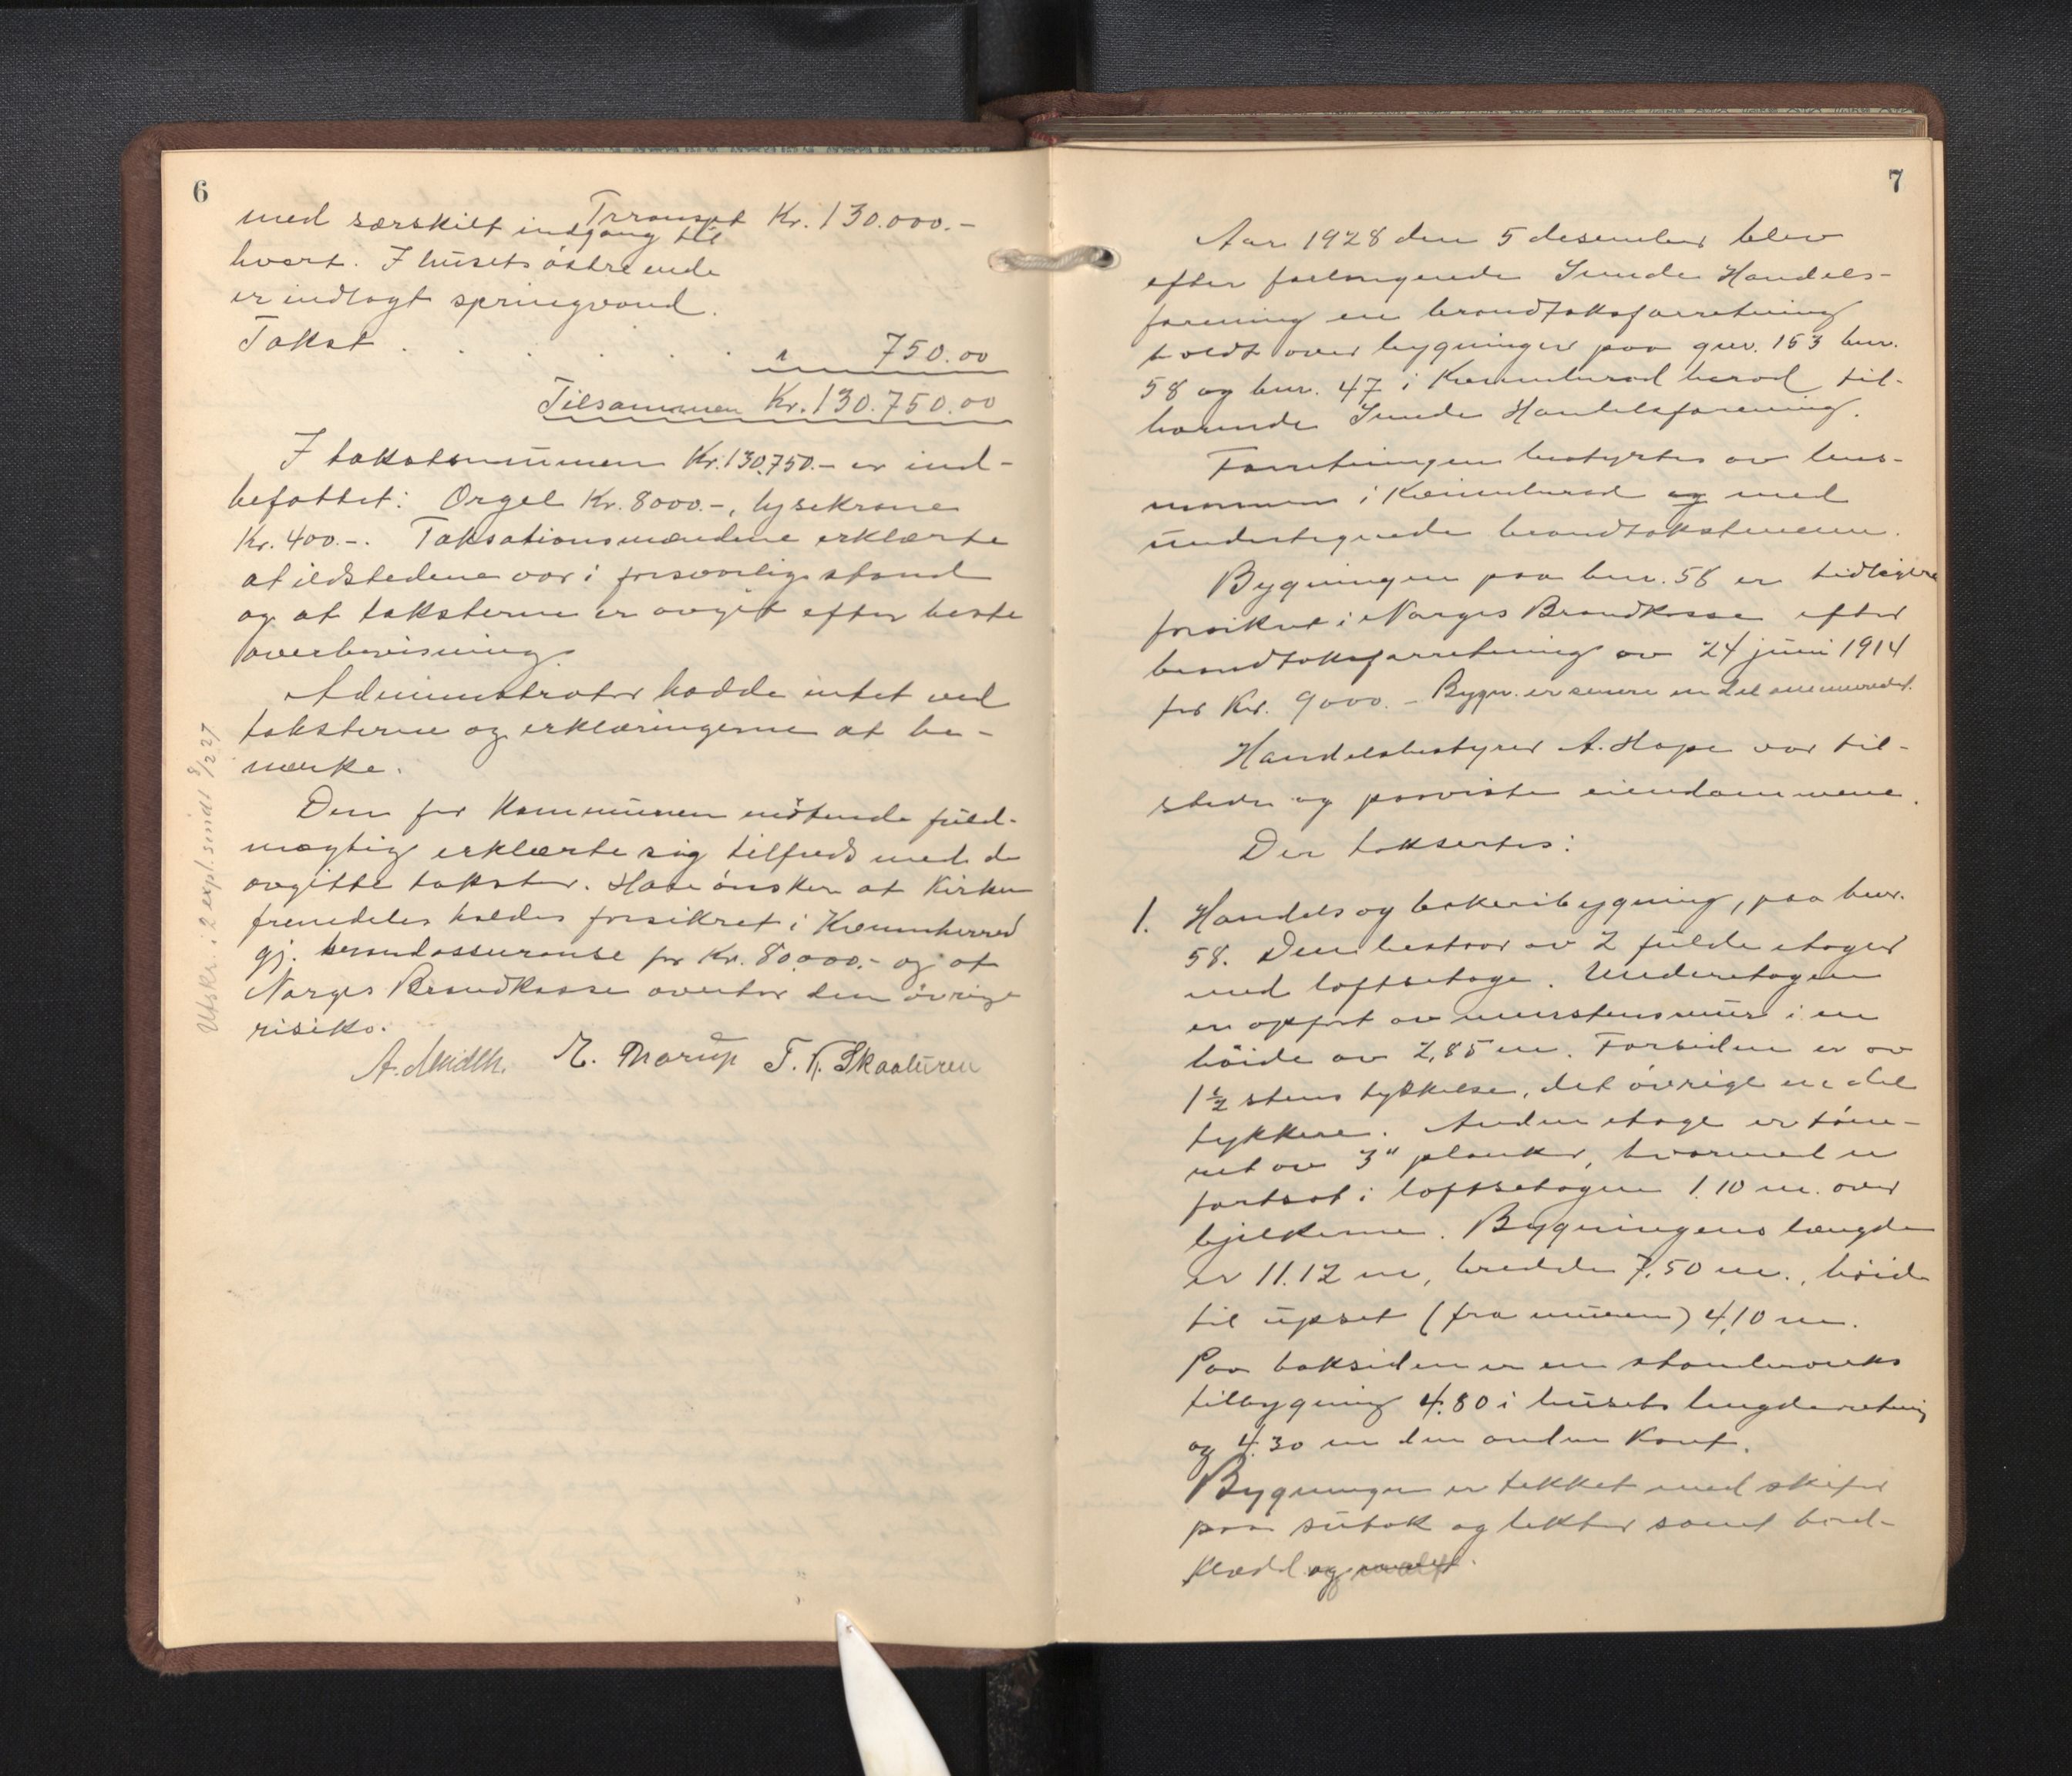 6
Transport Kr. 130.000.-
med særskilt indgang til
hvert. I husets østre ende
er indlagt springvand.
Takst . . . . . . " 750.00
Tilsammen Kr. 130.750.00
I takstsummen Kr. 130.750.- er ind-
befattet: Orgel Kr. 8000.-, lysekrone
Kr. 400.-. Taksationsmændene erklærte
at ildstedene var i forsvarlig stand
og at taksterne er avgit efter beste
overbevisning.
Administrator hadde intet ved
taksterne og erklæringerne at be-
merke.
Den for kommunen møtende fuld-
mægtig erklærte sig tilfreds med de
avgitte takster. Han ønsker at Kirken
fremdeles holdes forsikret i Kvinnherred
gj. brandassuranse for Kr. 80.000.- og at
Norges Brandkasse overtar den øvrige
risiko.
M. Morup T. K. Skaaluren
Utskr. i 2 expl. sendt 8/2 27
7
Aar 1928 den 5 desember blev
efter forlangende Sunde Handels-
forening en brandtakstforretning
holdt over bygninger paa gnr. 153 bnr.
58 og bnr. 47 i Kvinnherad herad til-
hørende Sunde Handelsforening.
Forretningen bestyrtes av lens-
mannen i Kvinnherad og med
undertegnede brandtakstmenn.
Bygningen paa bnr. 58 er tidligere
forsikret i Norges Brandkasse efter
brandtakstforretning av 24 juni 1914
for Kr. 9000.- Bygn. er senere en del ommonredet.
Handelsbestyrer A. Hope var til-
stede og paaviste eiendommene.
Der taksertes:
1. Handels og bakeribygning, paa bnr.
58. Den bestaar av 2 fulde etager
med loftsetage. Underetagen
er opført av murstensmur i en
høide av 2,85 m. Forsiden er av
1½ stens tykkelse, det øvrige en del
tykkere. Anden etage er tøm-
ret av 3" planker, hvormed er
fortsat i loftsetagen 1.10 m. over
bjelkerne. Bygningens længde
er 11.12 m, bredde 7,50 m., høide
til upset (fra muren) 4,10 m.
Paa baksiden er en standerverks
tilbygning 4.80 i husets lengderetning
og 4.30 m den anden kant.
Bygningen er tekket med skifer
paa sutak og lekter samt bord-
klædd og malt.